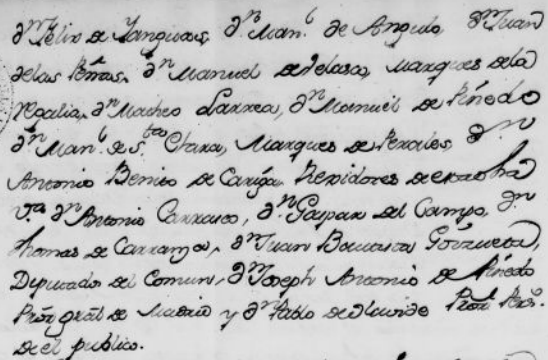 Dn Felix de Yanguas, Dn Manl de Angulo, Dn Juan
de las Peñas, Dn Manuel de Velasco, Marques de la
Regalia, Dn Matheo Larrea, Dn Manuel de Pinedo
Dn Manl de Sta Clara, Marques de Perales, Dn
Antonio Benito de Cariga Rexidores de esta dha
Va Dn Antonio Carrasco, Dn Gaspar del Campo, Dn
Thomas de Carranza, Dn Juan Bautista Goizueta,
Diputados del Comun, Dn Joseph Antonio de Pinedo
Prōr gral de Madrid y Dn Pablo de Olavide Prōr Pers.
de el publico.